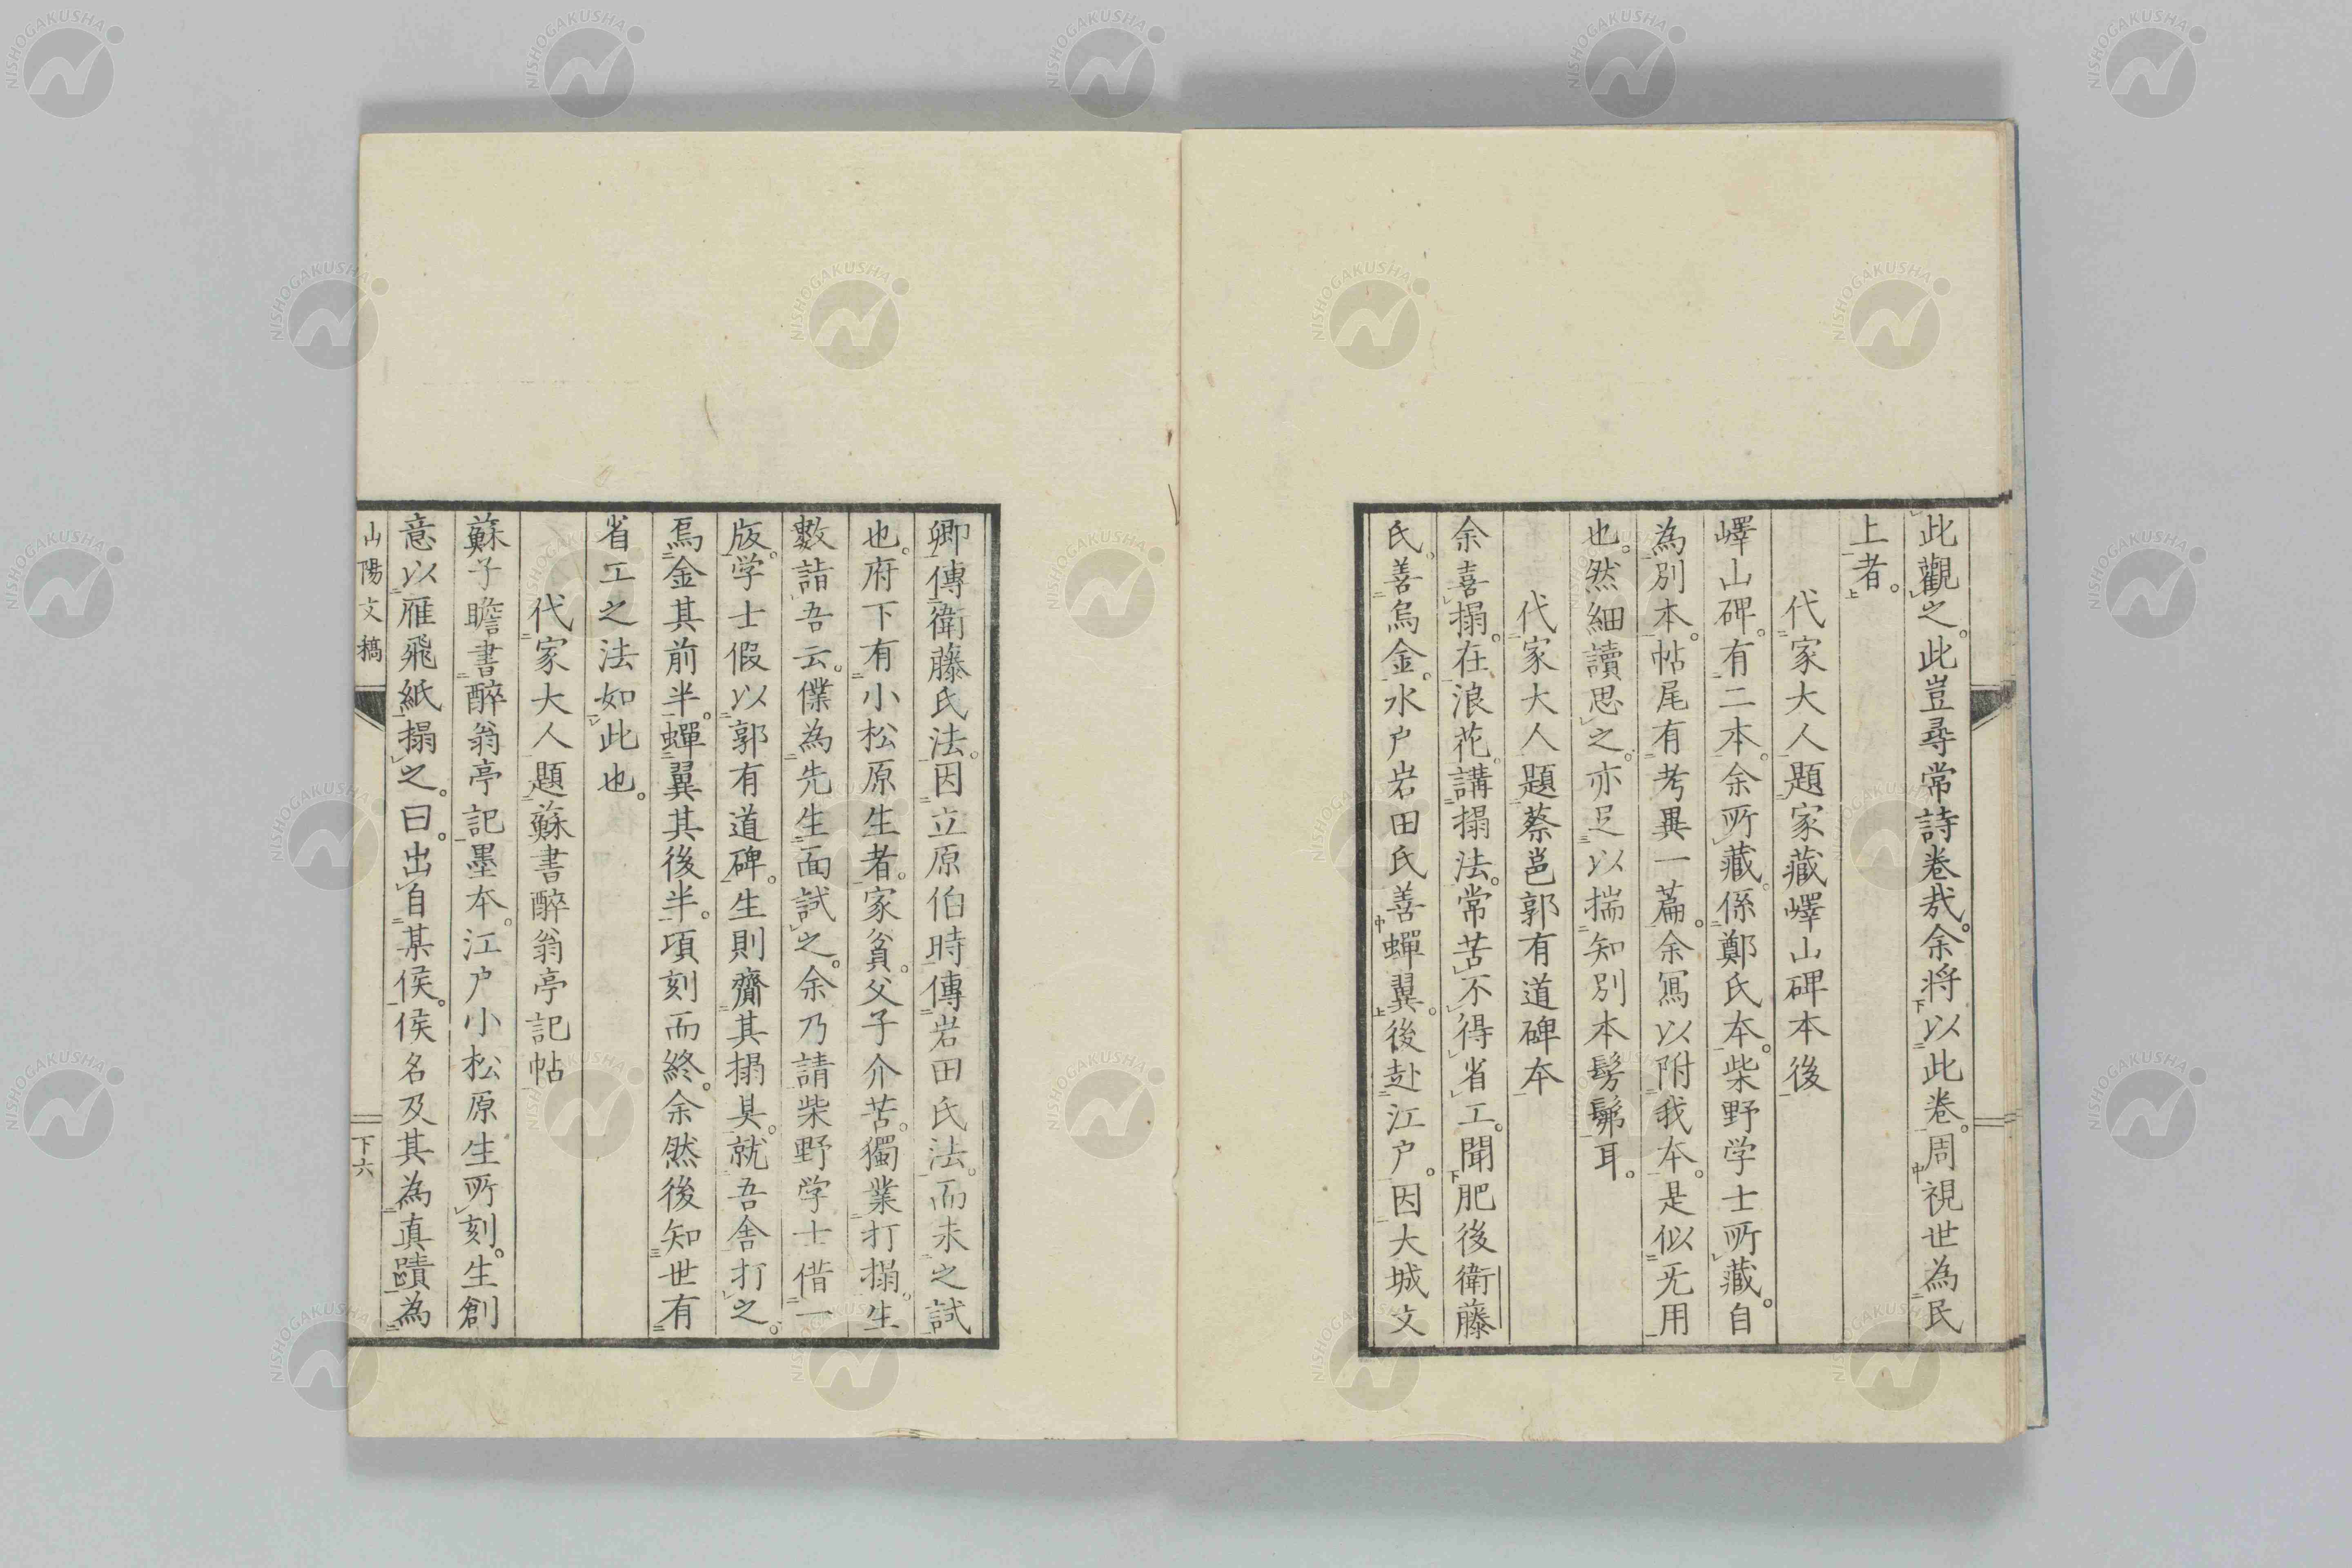 此觀之。此豈尋常詩卷哉。余将以此卷。周視世為民
上者。
代家大人題家藏嶧山碑本後
嶧山碑。有二本。余所藏。係鄭氏本。柴野学士所藏。自
為別本。帖尾有考異一篇。余寫以附我本。是似无用
也。然細讀思之。亦足以揣知別本髣髴耳。
代家大人題蔡邕郭有道碑本
余喜搨。在浪花。講搨法。常苦不得省工。聞肥後衛藤
氏。善烏金。水户岩田氏善蟬翼。後赴江户。因大城文
卿傳衛藤氏法。因立原伯時傳岩田氏法。而未之試
也。府下有小松原生者。家貧。父子介苦。獨業打搨。生
數詣吾云。僕為先生面試之。余乃請柴野学士借一
版。学士假以郭有道碑。生則齎其搨具。就吾舎打之。
烏金其前半。蟬翼其後半。項刻而終。余然後知世有
省工之法如此也。
代家大人題蘇書醉翁亭記帖
蘇子瞻書醉翁亭記墨本。江户小松原生所刻。生創
意以雁飛紙搨之。曰。出自某侯。侯名及其為真蹟為
山陽文稿
下六
NISHOGAKUSHA